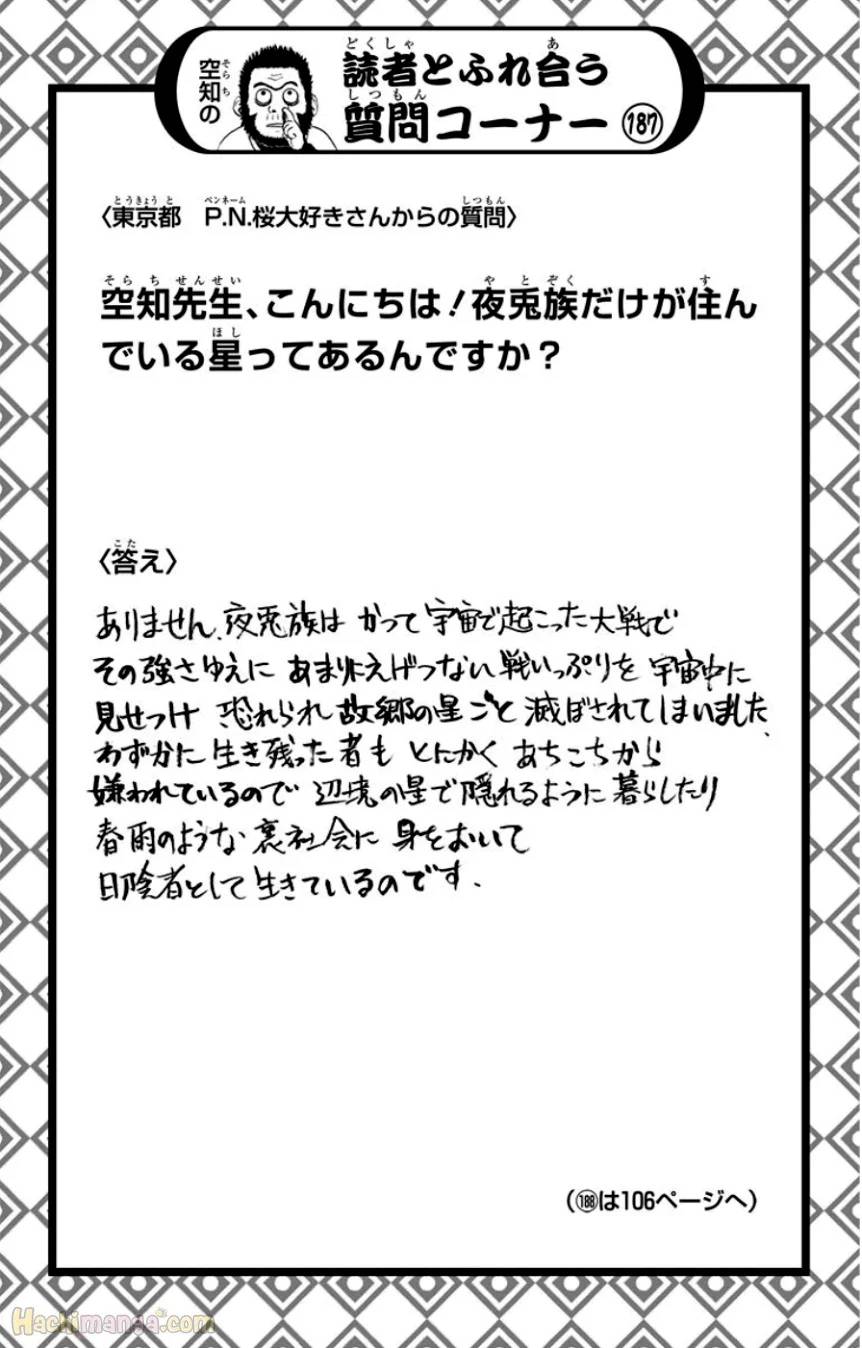 空知の
読者とふれ合う
質問コーナー 187
〈東京都 P.N.桜大好きさんからの質問〉
空知先生、こんにちは！夜兎族だけが住ん
でいる星ってあるんですか？
〈答え〉
ありません。夜兎族は かつて宇宙で起こった大戦で
その強さゆえに あまりにえげつない戦いっぷりを 宇宙中に
見せつけ 恐れられ 故郷の星ごと 滅ぼされてしまいました。
わずかに 生き残った者も とにかく あちこちから
嫌われているので 辺境の星で隠れるように暮らしたり
春雨のような 裏社会に 身をおいて
日陰者として 生きているのです。
（188は106ページへ）
Hachimanga.com